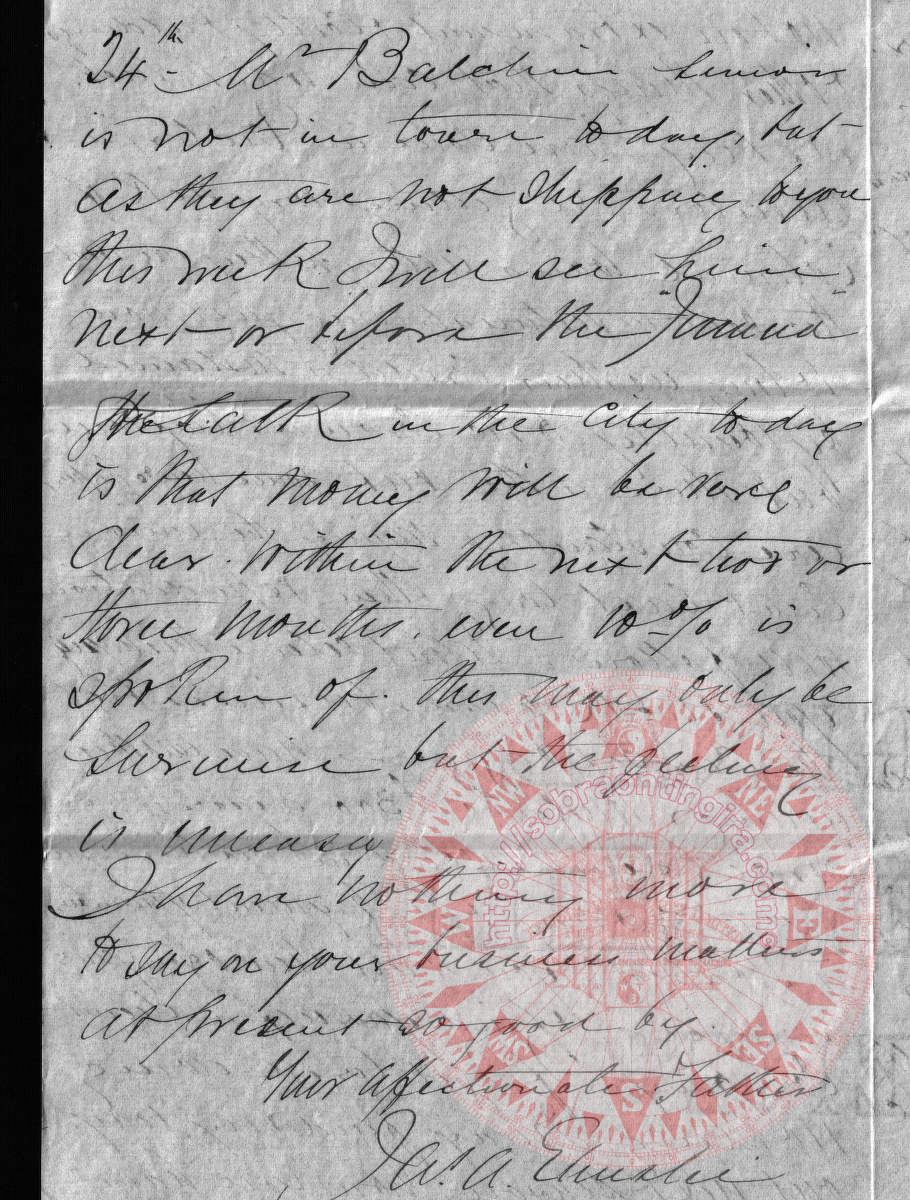 24th - Mr Balchin senior
is not in town to day, but
as they are not shipping to you
this week I will see him
next or before the "Jumna"
The talk in the City to day
is that money will be very
dear. Within the next two or
three months. even 10 % is
spoken of. this may only be
surmise but the feeling
is uneasy
I have nothing more
to say on your business matters
at present so good by.
Your affectionate Father
Jas. A.
http://sobraontingira.com
NW
NE
W
E
SW
SE
S